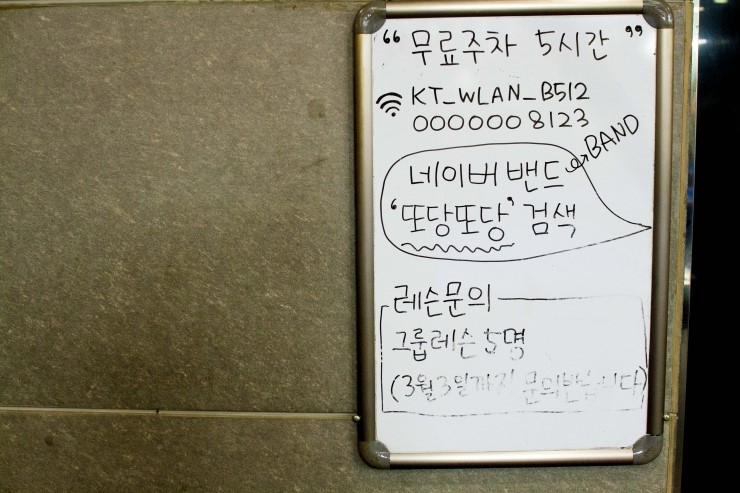 “ 무료주차 5시간 ”
KT_WLAN_B512
0000008123
네이버 밴드 → BAND
‘또당또당’ 검색
레슨문의
그룹레슨 5명
(3월3일까지 문의받습니다)